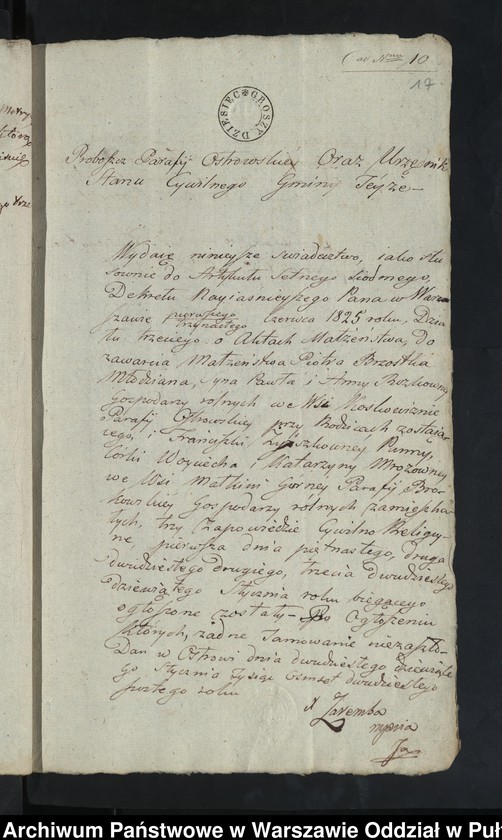 (ad Nrum 10
17
DZIESIEC GROSZY
Proboszcz Parafij Ostrowskiey Oraz Urzędnik
Stanu Cywilnego Gminy Teyże
Wydaię ninieysze świadectwo, iako Sto
sownie do Artykułu Setnego siodmego,
Dekretu Nayiasnieyszego Pana w Warszawie
pierwszego
trzynastego Czerwca 1825 roku, Dzia
łu trzeciego o Aktach Małżeństwa, do
zawarcia Małżeństwa Piotra Brzostka
Młodziana, syna Pawła i Anny
Gospodarzy rolnych we Wsi
Parafij Ostrowskiey przy Rodzicach zostaiącego,
i Franciszki Panny,
Corki Woyciecha i Katarzyny Mrozowney
we Wsi Małkini Gorney Parafij Bro
kowskiey Gospodarzy rolnych zamieszka
łych, trzy Zapowiedzie Cywilno Religiy
ne, pierwsza dnia piętnastego, druga
dwudziestego drugiego, trzecia dwudziestego
dziewiątego Stycznia roku bieżącego
ogłoszone zostały Po Ogłoszeniu
których, żadne Tamowanie niezaszło
Dan w Ostrowi dnia dwudziestego dziewiąte
go Stycznia Tysiąc Osmset dwudziestego
roku
X Zaremba
mpria
Archiwum Państwowe w Warszawie Oddział w Puł